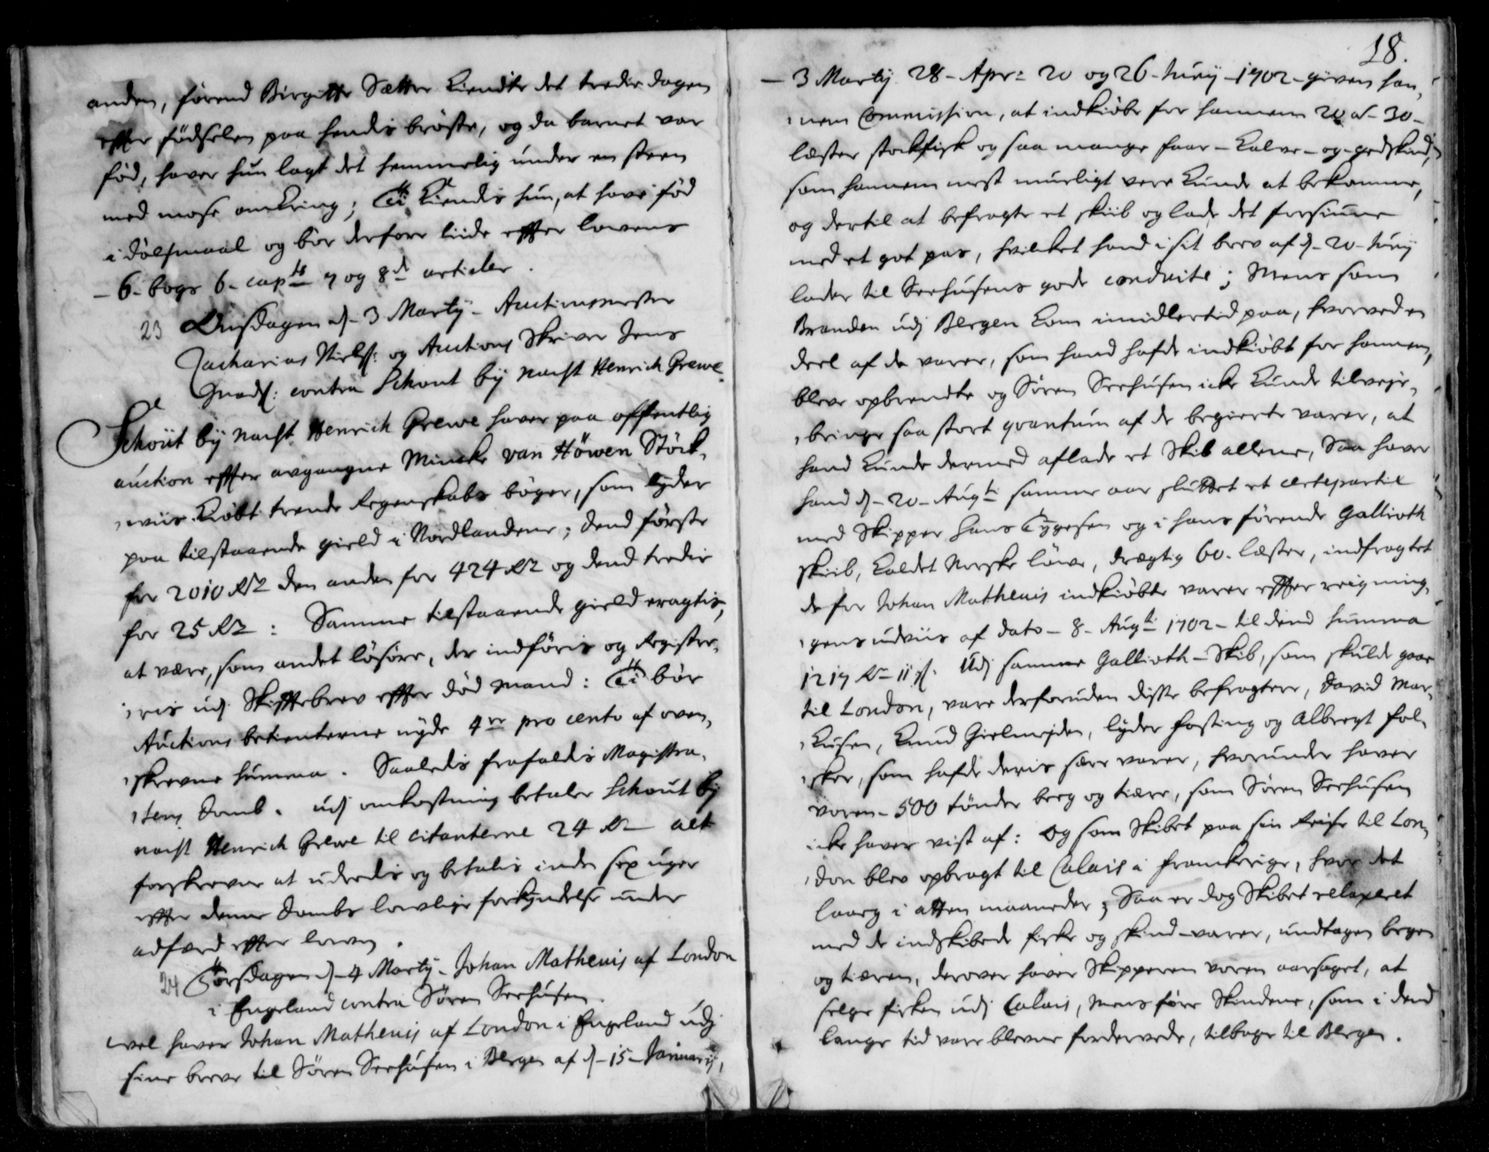 anden, førend Birgitte Sætter kiendte det tredie dagen
effter fødselen paa hendis bröste, og da barnet var
fød, haver hun lagt det hemmelig under en steen
med mose omkring; Thi kiendis hun, at have fød
i dölsmaal og bör derfore liide effter lovens
- 6. bogs 6. capts 7 og 8de articler.
23 Onsdagen d. 3 Martij. Auctionmester
Zacharias Niels: og Auctions Skriver Jens
contra Schout bij nacht Henrich Grewe.
Schout bij nacht Henrich Grewe haver paa offentlig
auction effter avgangne Mincke van Höwen Stöck,
viis kiöbt trende Regenskabs böger, som lyder
paa tilstaaende gield i Nordlandene; dend förste
for 2010 Rd den anden for 424 Rd og dend tredie
for 25 Rd: Samme tilstaaende gield eragtis,
at være, som andet lösöre, der indföris og Register,
,eris udj Skifftebrev effter död mand: Thi bör
Auctions betienterne nyde 4re pro cento af oven,
,skrevne summa. Saaledis frafaldis Magistra,
,tens domb. udj omkostning betaler Schout bij
nacht Henrich Grewe til citanterne 24 Rd alt
forskrevne at udredis og betalis inden sex uger
effter denne dombs lovlige forkyndelse under
adfærd effter loven.
24 Torsdagen d. 4 Martij. Johan Mathenis af London
i Engeland contra Sören Seehusen.
Wel haver Johan Mathenis af London i Engeland udj
sine breve til Sören Seehusen i Bergen af d. 15. Januarij,
18.
- 3 Martij 28. Apr: 20 og 26. Junij 1702. given han,
,nem Commission, at indkiöbe for hannem 20 a 30.
læster stockfisk og saa mange faar- kalve- og gedskind,
som hannem mest mueligt vere kunde at bekomme,
og dertil at befragte et skiib og lade det forsiune
med et got pas, hvilket hand i sit brev af d. 20. Junij
lader til Seehusens gode conduite; Mens som
Branden udj Bergen kom imidlertid paa, hvorved en
deel af de varer, som hand hafde indkiöbt for hannem,
bleve opbrendte og Sören Seehusen icke kunde tilveje,
,bringe saa stort qvantum af de begierte varer, at
hand kunde dermed aflade et Skib allene, Saa haver
hand d. 20. Augti samme aar sluttet et certepartie
med Skipper Hans Tygesen og i hans förende Gallioth
skiib, kaldet Norske löwe, drægtig 60. læster, indfragtet
de for Johan Mathenis indkiöbte varer effter reigning,
,gens udviis af dato 8. Augti 1702 til dend summa
1217 Rd 11 s. Udj samme Gallioth-Skib, som skulde gaae
til London, vare derforuden disse befragtere, David Mar,
,kusen, Knud Gielmejden, Lyder Fasting og Albregt Fol,
,sker, som hafde deris sære varer, hvorunder haver
været 500 tönder beeg og tiære, som Sören Seehusen
icke haver vist af: Og som Skibet paa sin Reise til Lon,
,don blev opbragt til Calais i Franckerige, hvor det
laaeg i atten maaneder; Saa er dog Skibet relaxeret
med de indskibede fiske og skind-varer, undtagen begen
og tiæren, derover haver Skipperen været aarsaget, at
selge fisken udj Calais, mens före Skindene, som i dend
lange tid vare blevne fordervede, tilbage til Bergen.